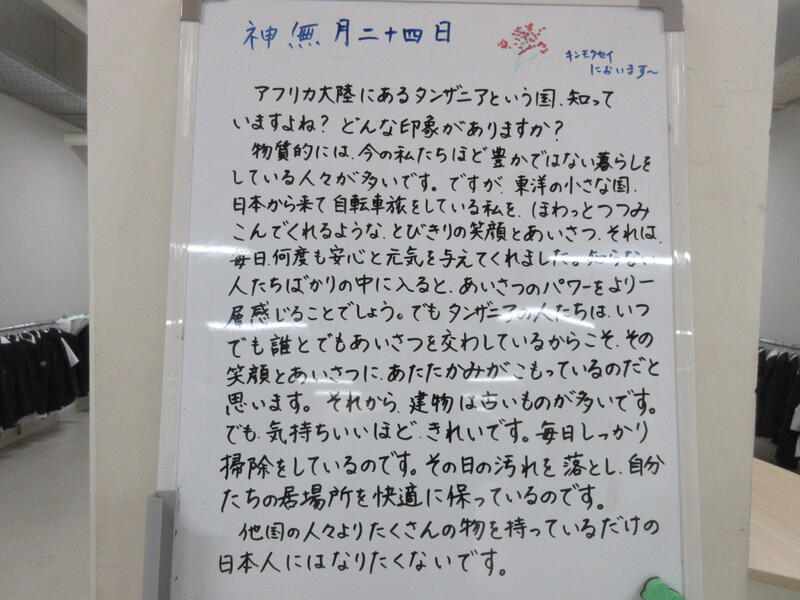 神無月二十四日
キンモクセイ
においます～
アフリカ大陸にあるタンザニアという国、知って
いますよね？どんな印象がありますか？
物質的には、今の私たちほど豊かではない暮らしを
している人々が多いです。ですが、東洋の小さな国、
日本から来て自転車旅をしている私を、ほわっとつつみ
こんでくれるような、とびきりの笑顔とあいさつ、それは、
毎日、何度も安心と元気を与えてくれました。知らない
人たちばかりの中に入ると、あいさつのパワーをより一
層感じることでしょう。でもタンザニアの人たちは、いつ
でも誰とでもあいさつを交わしているからこそ、その
笑顔とあいさつに、あたたかみがこもっているのだと
思います。それから、建物は古いものが多いです。
でも、気持ちいいほど、きれいです。毎日しっかり
掃除をしているのです。その日の汚れを落とし、自分
たちの居場所を快適に保っているのです。
他国の人々よりたくさんの物を持っているだけの
日本人にはなりたくないです。